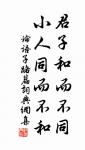 君子和而不同
小人同而不和
論語子路篇詞典網集